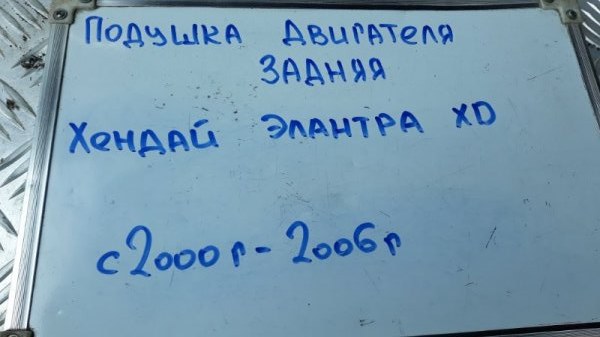 Подушка двигателя
задняя
Хендай Элантра XD
с 2000г - 2006г